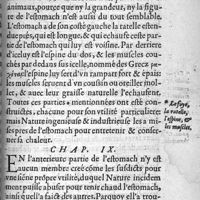 animaux, pource que ny la grandeur, ny la figu-
re de l'estomach n'est aussi du tout semblable.
L'estomach a de son costé gauche la ratelle esten-
qui est longue, & qui eschaufe ceste par-
tie de l'estomach qui luy est voisine. Par der-
est l'espine du dos, & les muscles cou-
chez par dessus icelle, nommez des Grecz
l'espine luy sert d'vn rampart fort & épais:
muscles seruent d'vn coussin ou oreiller mol-
let, & auec leur graisse naturelle l'eschaufent.
Toutes ces parties * mentionnées ont esté
chacune pour son vtilité particuliere
mais Nature ingenieuse & industrieuse les a mi-
ses pres de l'estomach pour entretenir & conser-
uer sa chaleur.
* Le foye,
la ratelle,
l'espine, &
les muscles.
CHAP. IX.
EN l'anterieure partie de l'estomach n'y est
aucun membre creé côme les susdictz pour
vne siene propre vtilité, duquel Nature inciden-
ment puisse abuser pour tenir chaud l'estomach,
ainsi que des autres. Parquoy elle a trou-